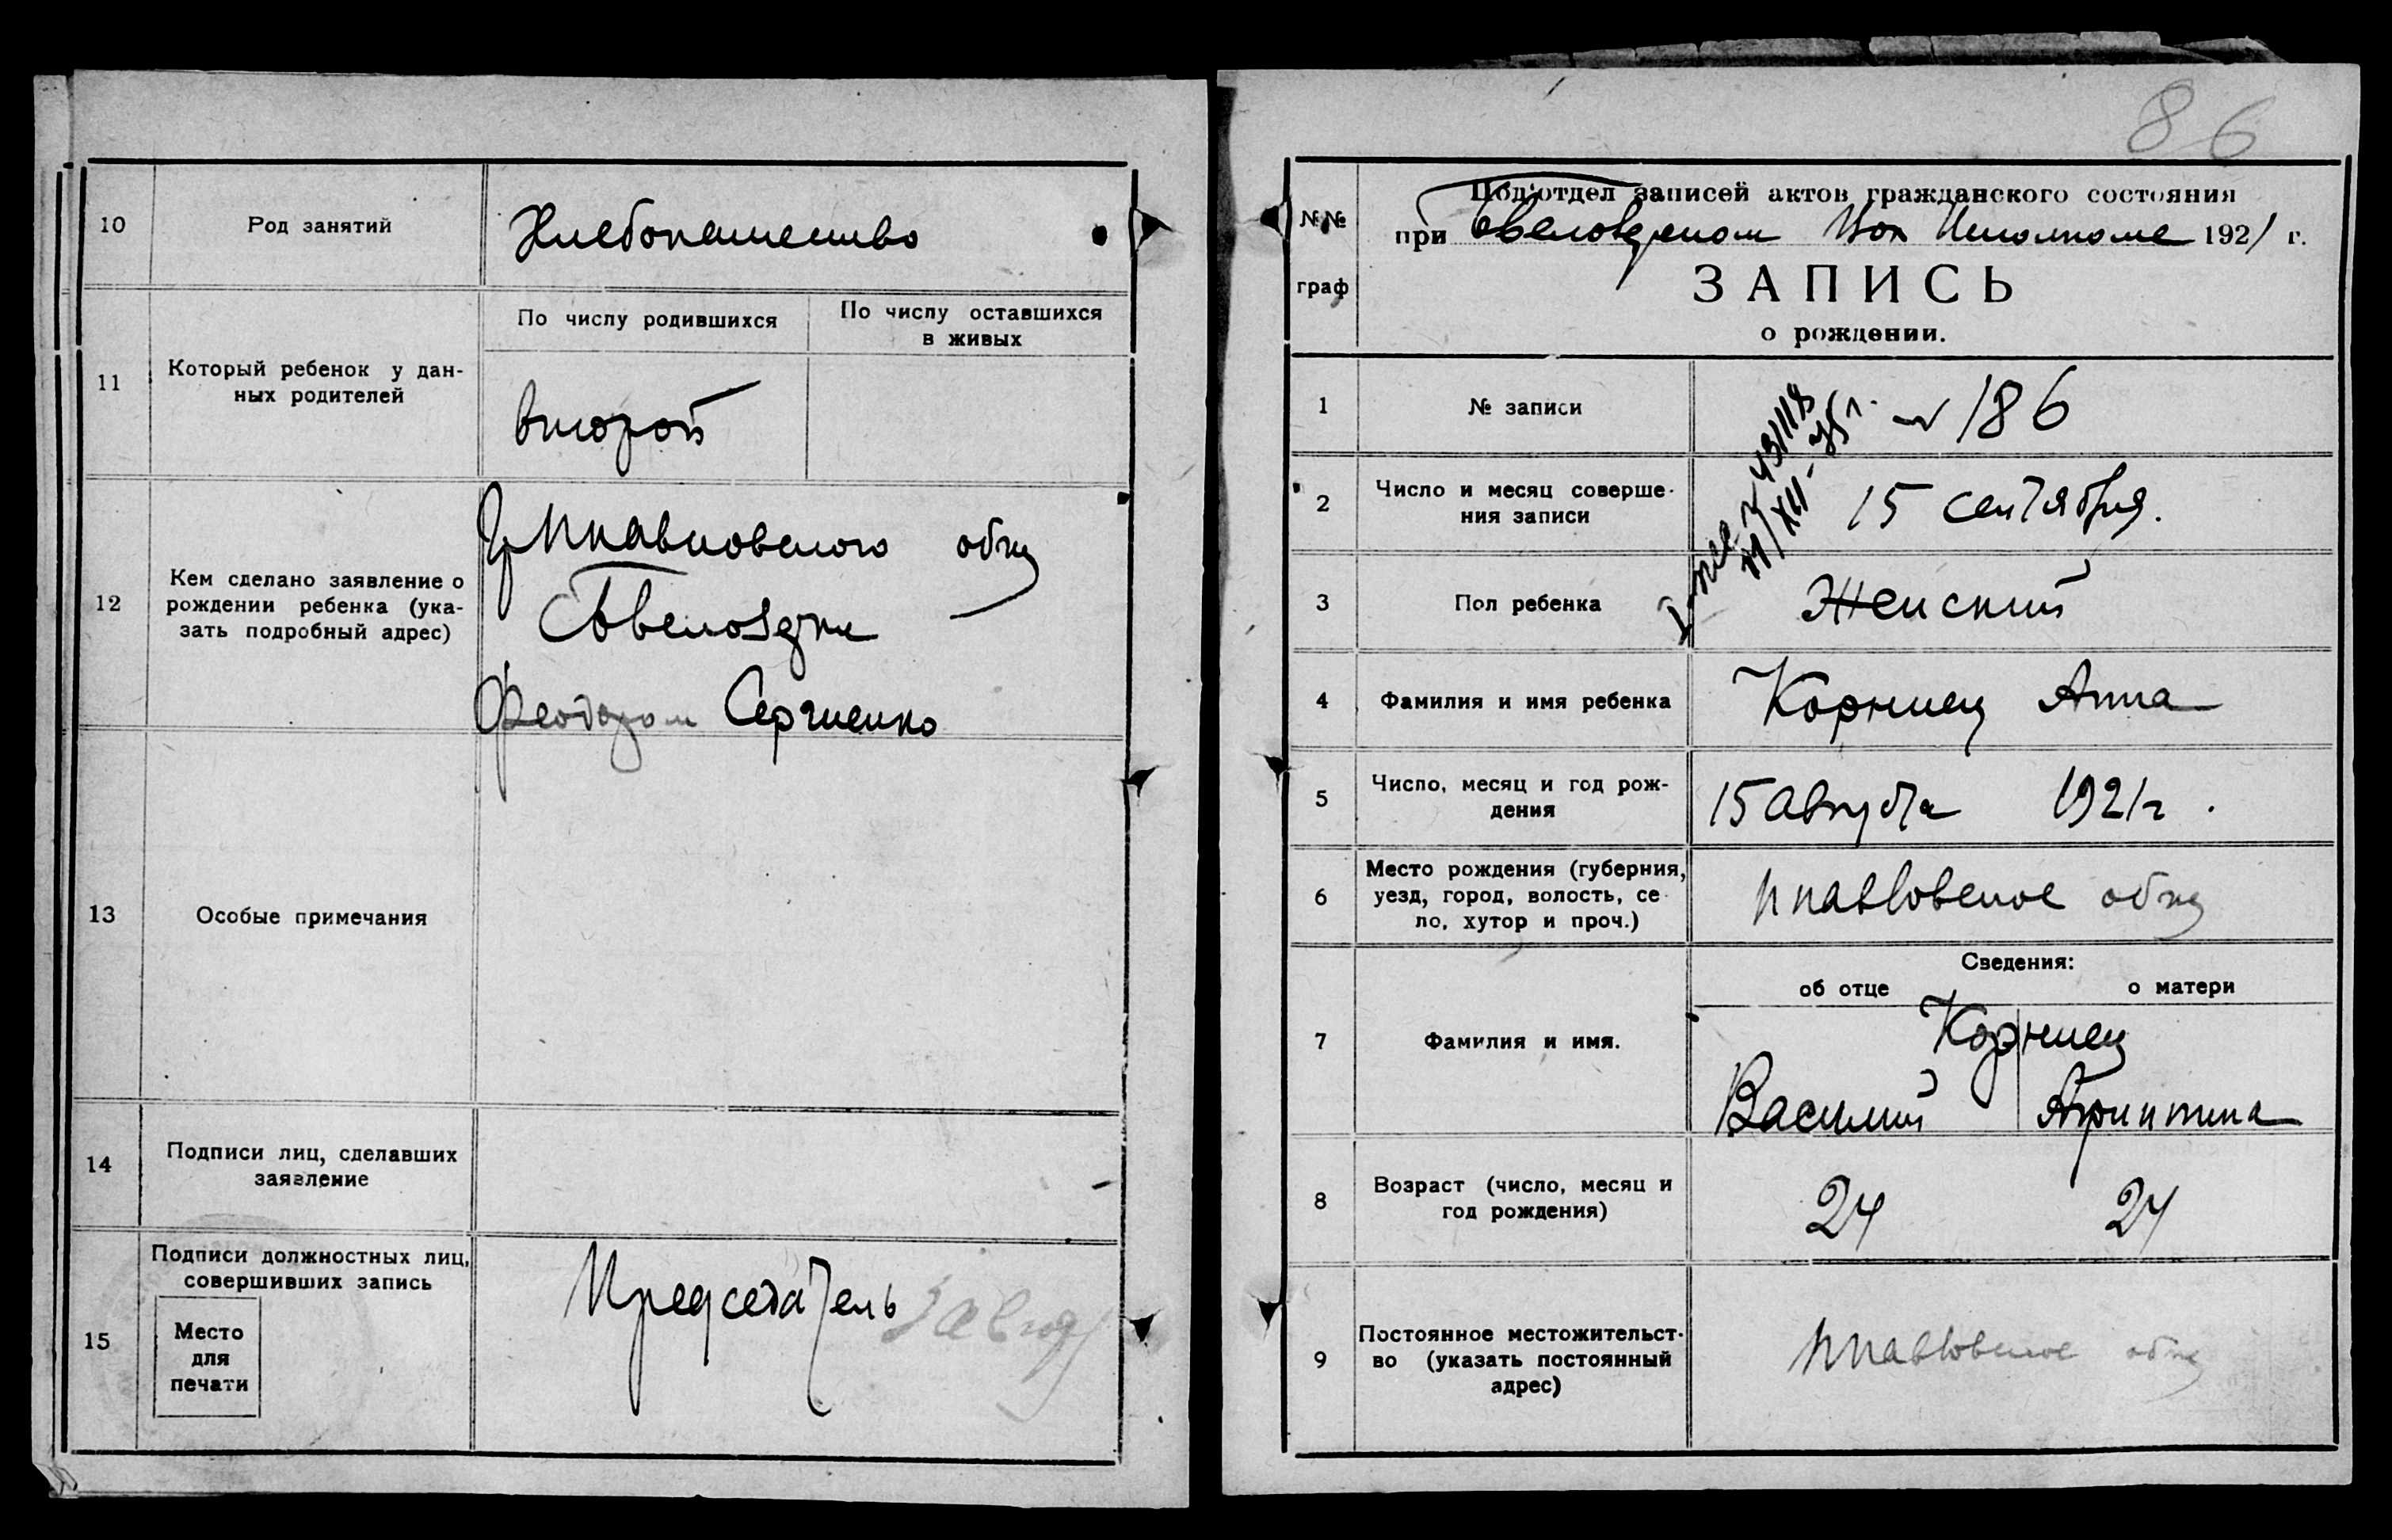 10
Род занятий
Хлебопашество
11
Который ребенок у дан-
ных родителей
По числу родившихся
По числу оставшихся
в живых
второй
12
Кем сделано заявление о
рождении ребенка (ука-
зать подробный адрес)
общ
Феодором Сергиенко
13
Особые примечания
14
Подписи лиц, сделавших
заявление
15
Подписи должностных лиц,
совершивших запись
Место
для
печати
Председатель
86
№№
граф
Подотдел записей актов гражданского состояния
при Вол Исполкоме 1921 г.
ЗАПИСЬ
о рождении.
1
№ записи
186
2
Число и месяц соверше-
ния записи
15 сентября.
3
Пол ребенка
Женский
4
Фамилия и имя ребенка
Корниец Анна
5
Число, месяц и год рож-
дения
15 августа 1921 г.
6
Место рождения (губерния,
уезд, город, волость, се-
ло, хутор и проч.)
общ
Сведения:
об отце
о матери
7
Фамилия и имя.
Корниец
Василий
8
Возраст (число, месяц и
год рождения)
24
24
9
Постоянное местожительст-
во (указать постоянный
адрес)
общ